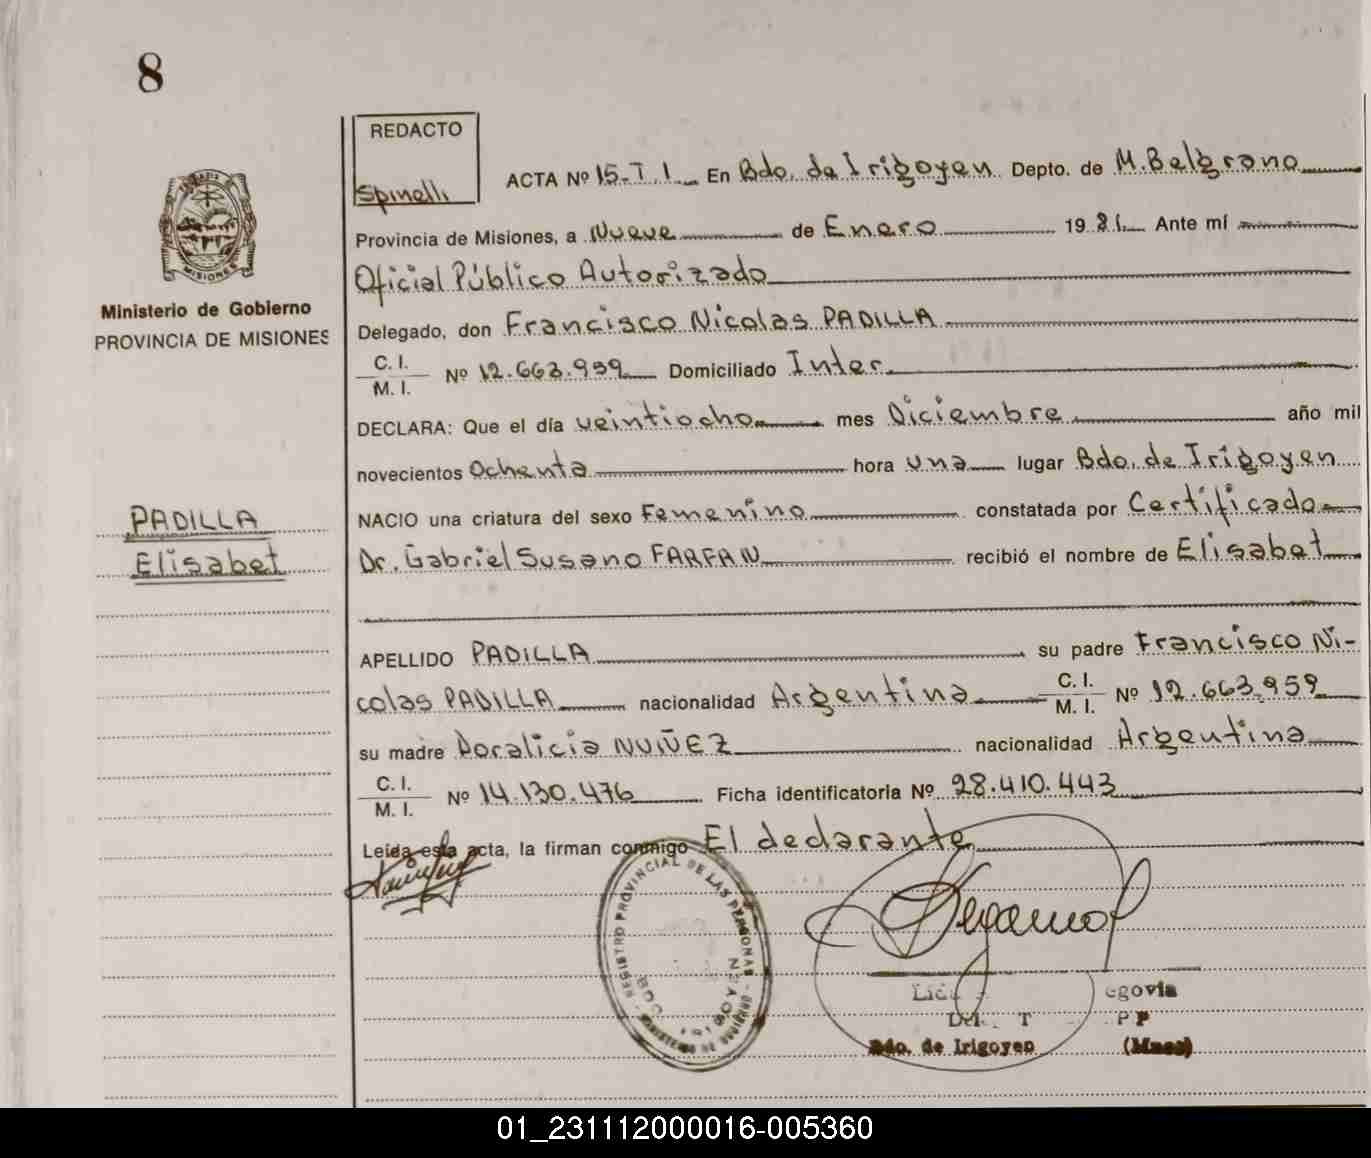 8
REDACTO
Spinelli
ACTA Nº 15-T.1. En Bdo. de Irigoyen Depto. de M. Belgrano
Provincia de Misiones, a Nueve de Enero 1981. Ante mí
Oficial Público Autorizado
Ministerio de Gobierno
PROVINCIA DE MISIONES
Delegado, don Francisco Nicolas PADILLA
C. I.
M. I. Nº 12.663.959 Domiciliado Inter.
DECLARA: Que el día veintiocho mes Diciembre año mil
novecientos Ochenta hora una lugar Bdo. de Irigoyen
NACIO una criatura del sexo Femenino constatada por Certificado
PADILLA
Elisabet
Dr. Gabriel Susano FARFAN recibió el nombre de Elisabet
APELLIDO PADILLA su padre Francisco Ni-
colas PADILLA nacionalidad Argentina C. I. M. I. Nº 12.663.959
su madre Doralicia NUÑEZ nacionalidad Argentina
C. I.
M. I. Nº 14.130.476 Ficha identificatoria Nº 28.410.443
Leída esta acta, la firman conmigo El declarante
REGISTRO PROVINCIAL DE LAS PERSONAS
MINISTERIO DE GOBIERNO
egovia
Bdo. de Irigoyen (Mnes)
01_231112000016-005360